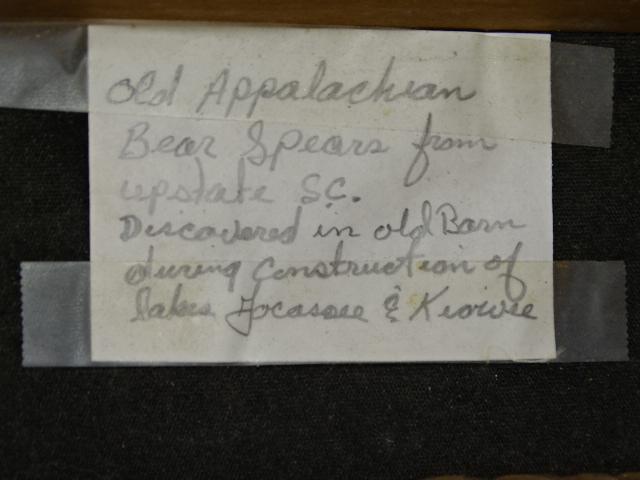 Old Appalachian
Bear Spears from
upstate SC.
Discovered in old Barn
during Construction of
lakes Jocassee & Keowee